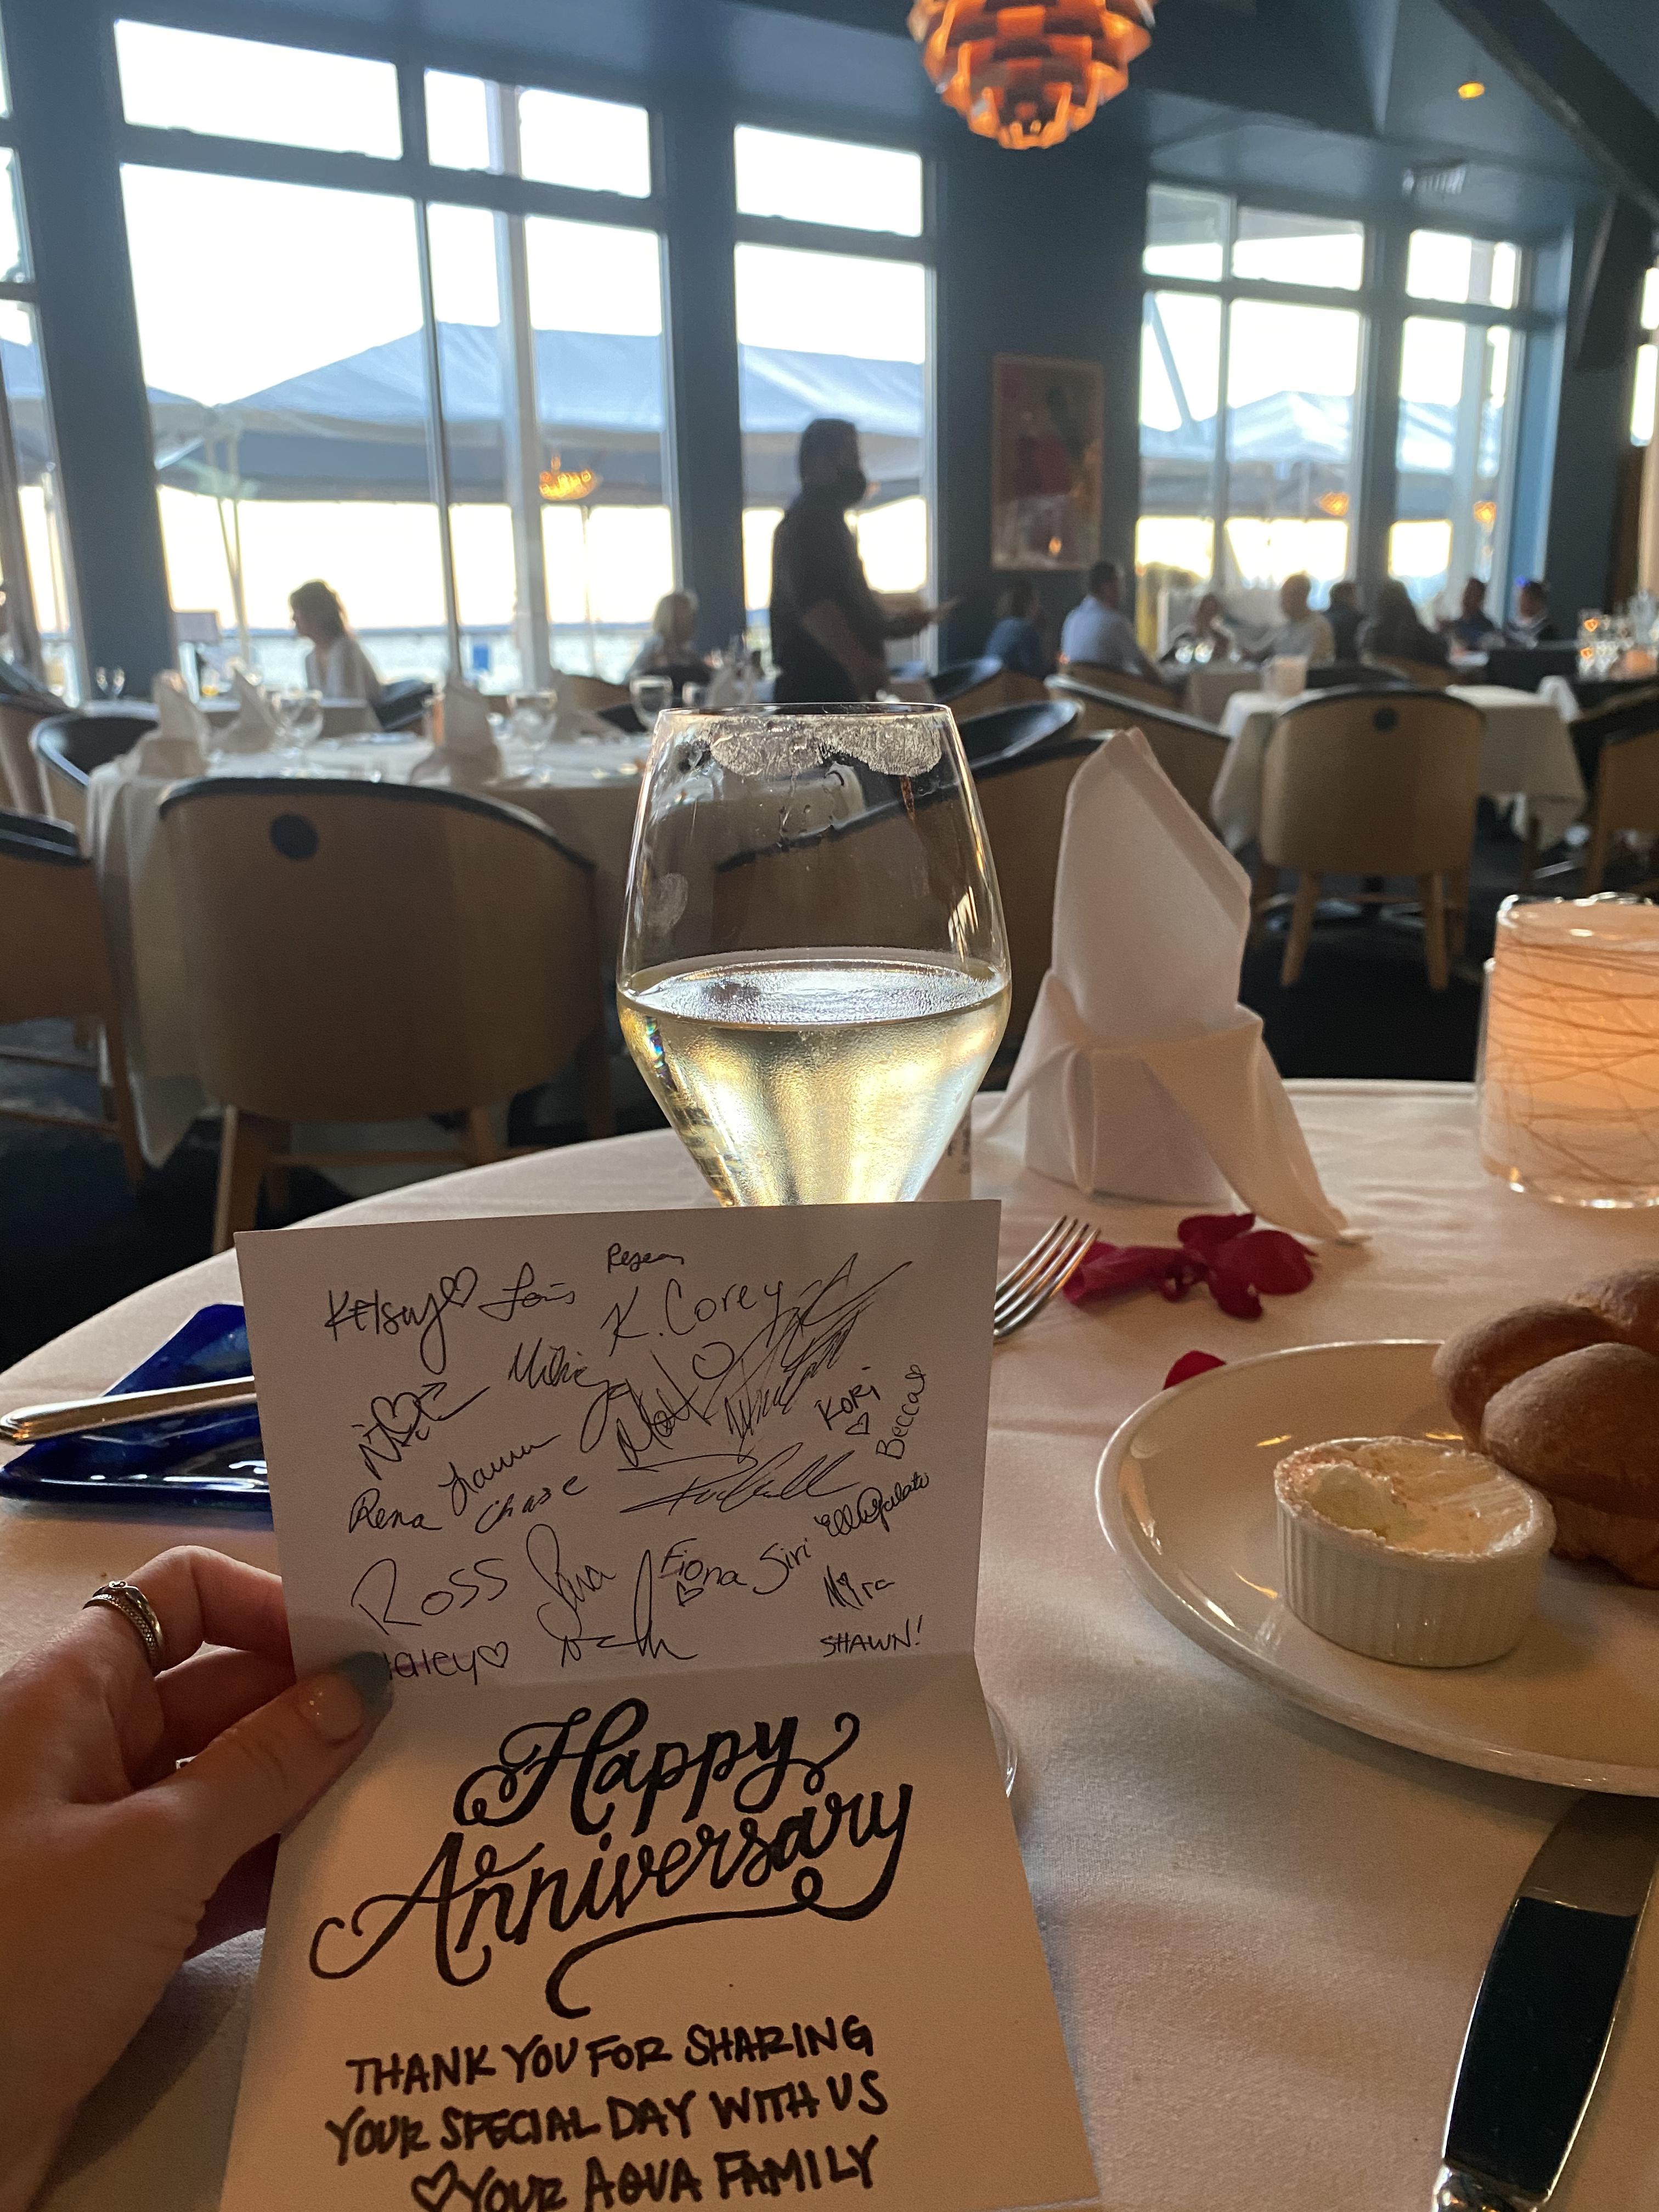 Kelsey♡ Lois
K. Corey
Matt
KORi
♡
Becca
Rena Lauren
Chase
Ross
Fiona Siri
♡
Myra
Haley♡
SHAWN!
Happy
Anniversary
THANK YOU FOR SHARING
YOUR SPECIAL DAY WITH US
♡YOUR AQUA FAMILY